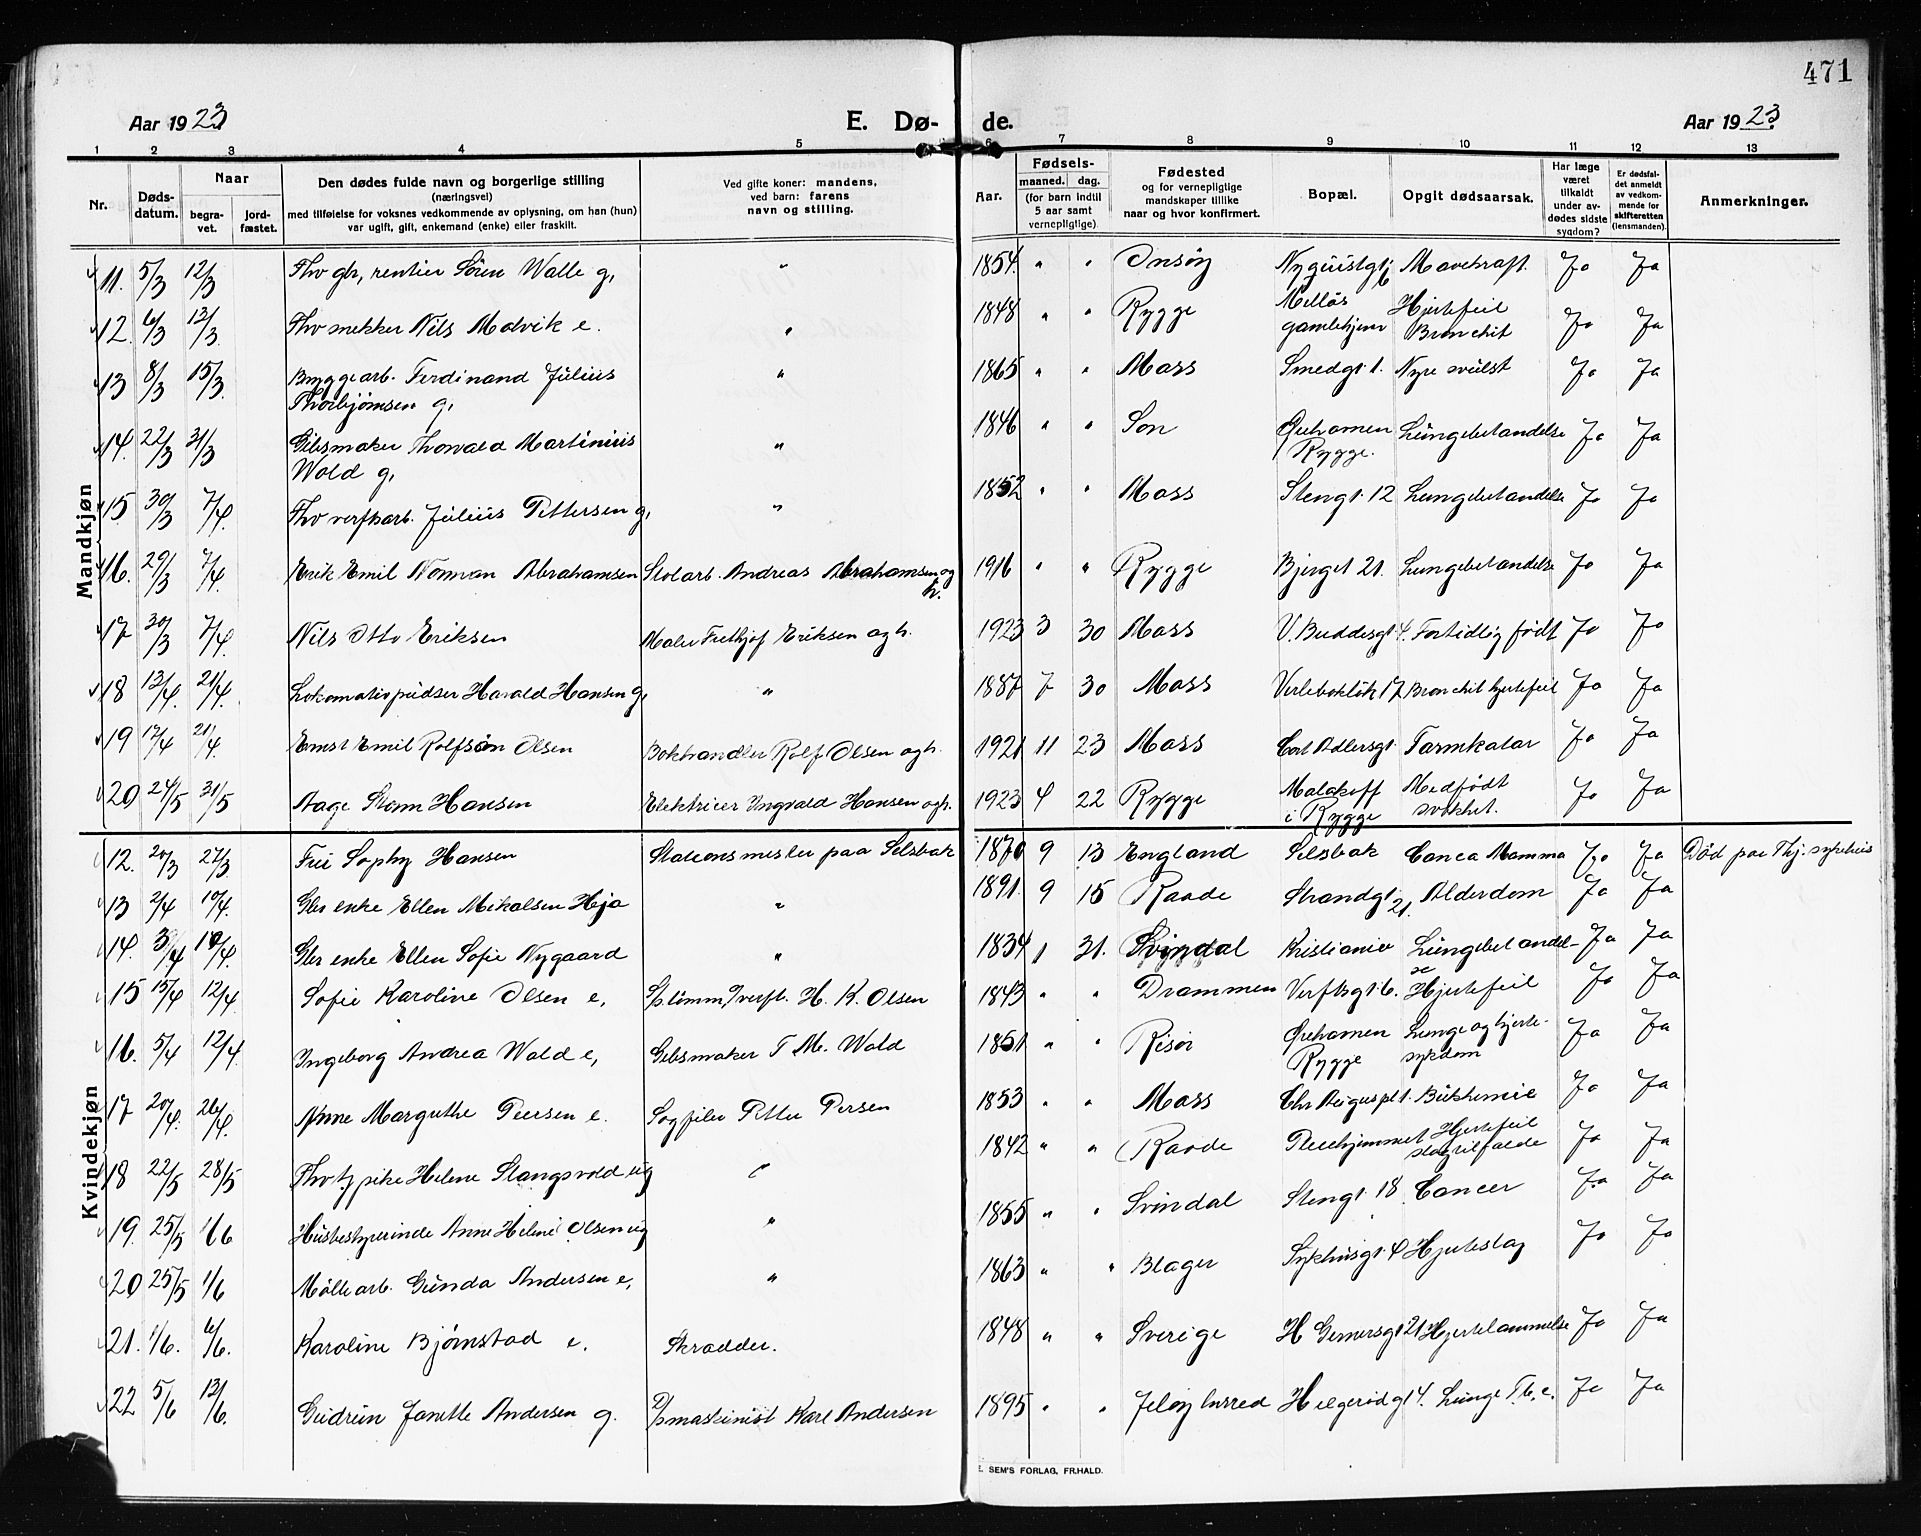 471
Aar 1923 E. Dø- de. Aar 1923
1 2 3 4 5 6 7 8 9 10 11 12 13
Nr. Døds-datum. Naar begra-vet. jord-fæstet. Den dødes fulde navn og borgerlige stilling (næringsvei) med tilføielse for voksnes vedkommende av oplysning, om han (hun) var ugift, gift, enkemand (enke) eller fraskilt. Ved gifte koner: mandens, ved barn: farens navn og stilling. Aar. Fødsels- maaned. dag. (for barn indtil 5 aar samt vernepligtige). Fødested og for vernepligtige mandskaper tillike naar og hvor konfirmert. Bopæl. Opgit dødsaarsak. Har læge været tilkaldt under av-dødes sidste sygdom? Er dødsfal-det anmeldt av vedkom-mende for skifteretten (lensmanden). Anmerkninger.
Mandkjøn
11. 5/3 12/3 Fhv gbr, rentier Sören Walle g, " 1854. " " Onsöy Nyquistgt. 6 Mavekraft. Ja Ja
12. 6/3 13/3 Fhv snekker Nils Malvik e. " 1848 " " Rygge Mellös gamlehjem Hjertefeil Bronchit Ja Ja
13 8/3 15/3 Bryggearb. Ferdinand Julius Thorbjörnsen g, " 1865 " " Moss Smedgt. 1. Nyre svulst Ja Ja
14. 22/3 31/3 Gibsmaker Thorvald Martinius Wold g, " 1846 " " Son Örehamen Rygge. Lungebetandelse Ja Ja
15 30/3 7/4. Fhv verftsarb. Julius Pettersen g, " 1852 " " Moss Stengt. 12 Lungebetandelse Ja Ja
16. 29/3 7/4. Erik Emil Norman Abrahamsen Stolarb. Andreas Abrahamsen og h. 1916 " " Rygge Bjergt 21. Lungebetandelse Ja Ja
17 30/3 7/4. Nils Otto Eriksen Maler Frethjof Eriksen og h. 1923 3 30 Moss V. Buddesgt 4. Fortidlig födt Ja Ja
18 13/4. 21/4. Lokomotivpudser Harald Hansen g, " 1887 7 30 Moss Verlebakløk 17 Bronchit hjertefeil Ja Ja
19 17/4 21/4. Ernst Emil Rolfsön Olsen Bokhandler Rolf Olsen og h. 1921 11 23 Moss Cort Adlersgt. Tarmkatar Ja Ja
20 24/5 31/5 Aage Stam Hansen Elektricer Ingvald Hansen og h. 1923 4 22 Rygge Malakoff i Rygge Medfödt svakhet. Ja Ja
Kvindekjøn
12. 20/3 27/3. Fru Sophy Hansen Stationsmester paa Selsbak 1870 9 13 England Selsbak Canca Mamma Ja Ja Död paa Thj. sykehus
13 2/4 10/4. Gbr enke Ellen Mikalsen Hjo " 1891. 9 15 Raade Strandgt 21. Alderdom Ja Ja
14. 3/4 10/4. Gbr enke Ellen Sofie Nygaard " 1834 1 31. Svindal Kristiania Lungebetandelse Ja Ja
15 15/4 12/4 Sofie Karoline Olsen e, H. K. Olsen 1843 " " Drammen Verftsgt. 6. Hjertefeil Ja Ja
16. 5/4 12/4. Ingeborg Andrea Wold e, Gibsmaker T M. Wold 1851 " " Risör Örehamen Rygge Lunge og hjerte-sykdom Ja Ja
17 20/4. 26/4. Anne Margrethe Peersen e. Sagfiler Petter Persen 1853 " " Moss Chr Reigus pl 1. Bukhinnie Ja Ja
18 22/5 28/5 Fhv tj pike Helene Slangsvold ug " 1842 " " Raade Pleiehjemmet Hjertefeil slagtilfælde Ja Ja
19. 25/5 1/6 Husbestyrerinde Anne Helene Olsen ug " 1855 " " Svindal Stengt. 18 Cancer Ja Ja
20 25/5 1/6 Möllearb. Gunda Andersen e, " 1863 " " Blager Sykhusgt. 4 Hjerteslag Ja Ja
21. 1/6. 6/6. Karoline Björnstad e. Skrædder. 1848 " " Sverige H Gernersgt 21 Hjertelammelse Ja Ja
22 5/6 13/6. Gudrun Janette Andersen g. D/Smaskinist Karl Andersen 1895 " " Jelöy Helgerödgt 4. Lunge Tb.c. Ja Ja
E. SEM'S FORLAG, FR.HALD.